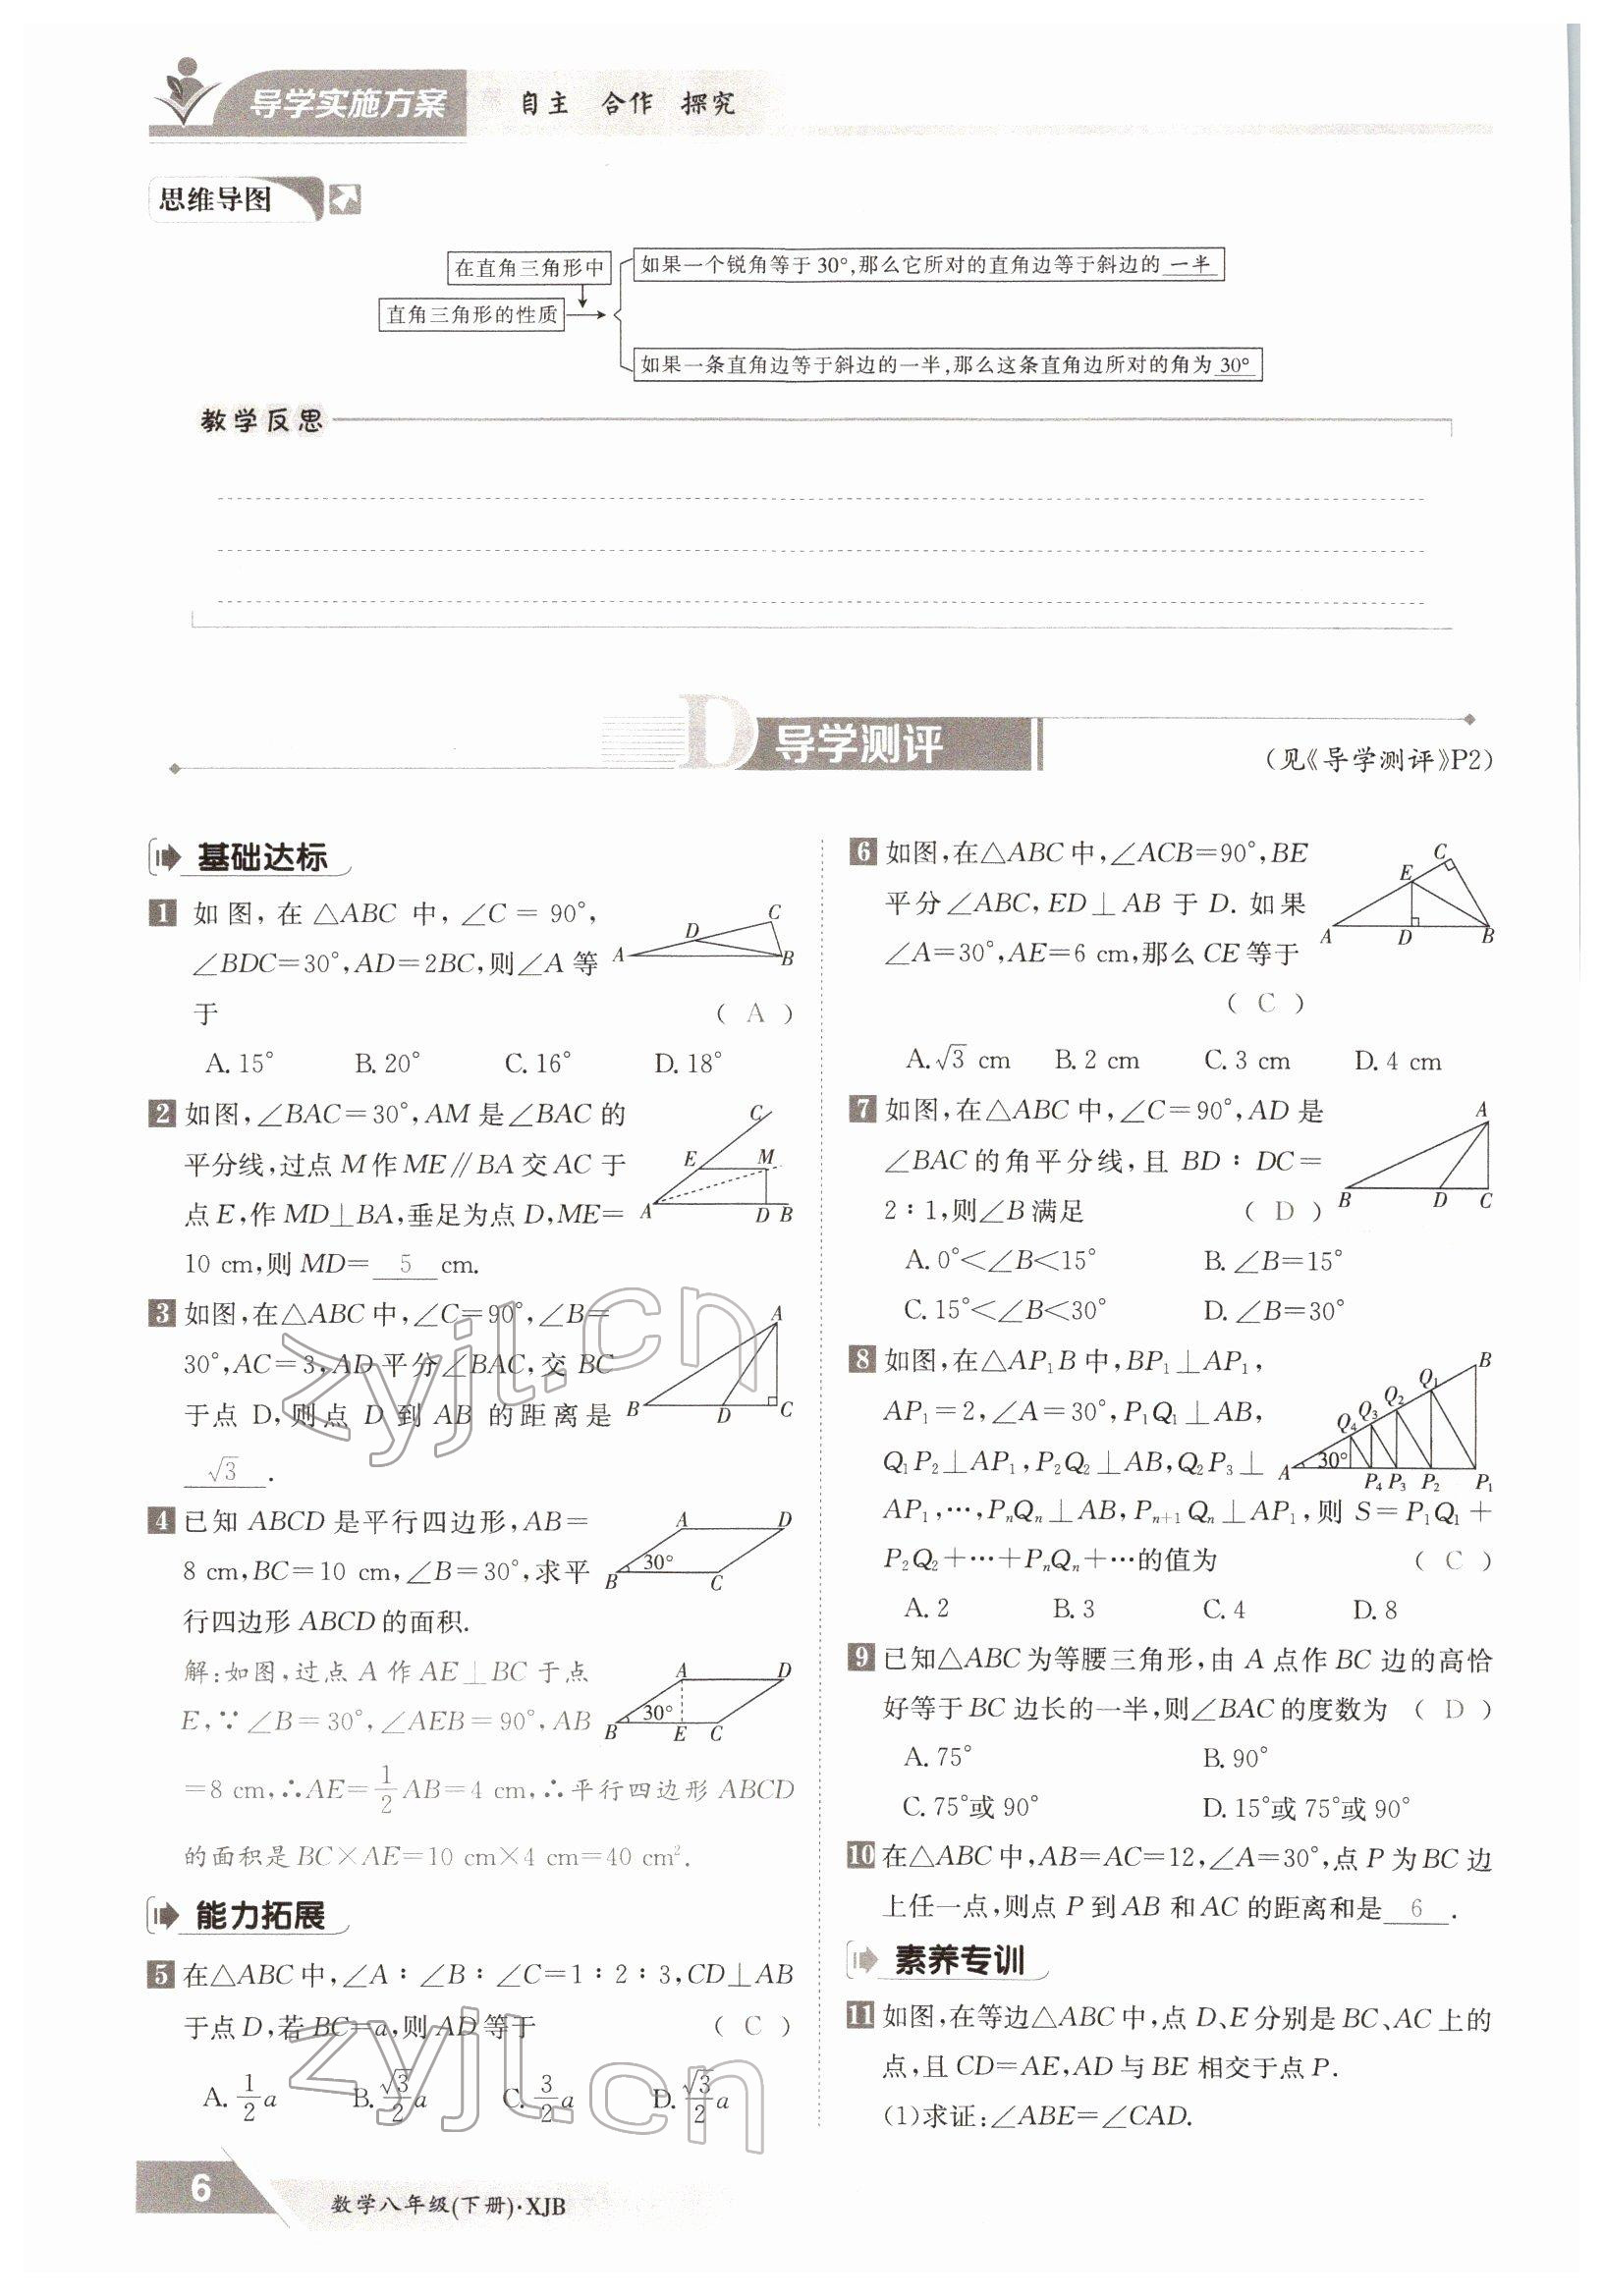 导学实施方案 自主 合作 探究
思维导图
在直角三角形中
如果一个锐角等于30°,那么它所对的直角边等于斜边的 一半
直角三角形的性质
如果一条直角边等于斜边的一半,那么这条直角边所对的角为 30°
教学反思
D 导学测评
(见《导学测评》P2)
基础达标
1 如图,在△ABC中,∠C=90°,
∠BDC=30°,AD=2BC,则∠A等
于 ( A )
A D C B
A. 15° B. 20° C. 16° D. 18°
2 如图,∠BAC=30°,AM是∠BAC的
平分线,过点M作ME∥BA交AC于
点E,作MD⊥BA,垂足为点D,ME=
10 cm,则MD= 5 cm.
C E M A D B
3 如图,在△ABC中,∠C=90°,∠B=
30°,AC=3,AD平分∠BAC,交BC
于点D,则点D到AB的距离是
√3 .
A B D C
4 已知ABCD是平行四边形,AB=
8 cm,BC=10 cm,∠B=30°,求平
行四边形ABCD的面积.
A D 30° B C
解:如图,过点A作AE⊥BC于点
E,∵∠B=30°,∠AEB=90°,AB
=8 cm,∴AE=1/2AB=4 cm,∴平行四边形ABCD
的面积是BC×AE=10 cm×4 cm=40 cm².
A D 30° B E C
能力拓展
5 在△ABC中,∠A∶∠B∶∠C=1∶2∶3,CD⊥AB
于点D,若BC=a,则AD等于 ( C )
A. 1/2 a B. √3/2 a C. 3/2 a D. √3/2 a
6 如图,在△ABC中,∠ACB=90°,BE
平分∠ABC,ED⊥AB于D.如果
∠A=30°,AE=6 cm,那么CE等于
( C )
C E A D B
A. √3 cm B. 2 cm C. 3 cm D. 4 cm
7 如图,在△ABC中,∠C=90°,AD是
∠BAC的角平分线,且BD∶DC=
2∶1,则∠B满足 ( D )
A B D C
A. 0°<∠B<15° B. ∠B=15°
C. 15°<∠B<30° D. ∠B=30°
8 如图,在△AP₁B中,BP₁⊥AP₁,
AP₁=2,∠A=30°,P₁Q₁⊥AB,
Q₁P₂⊥AP₁,P₂Q₂⊥AB,Q₂P₃⊥
AP₁,…,PₙQₙ⊥AB,Pₙ₊₁Qₙ⊥AP₁,则S=P₁Q₁+
P₂Q₂+…+PₙQₙ+…的值为 ( C )
B Q₁ Q₂ Q₃ Q₄ 30° A P₄ P₃ P₂ P₁
A. 2 B. 3 C. 4 D. 8
9 已知△ABC为等腰三角形,由A点作BC边的高恰
好等于BC边长的一半,则∠BAC的度数为 ( D )
A. 75° B. 90°
C. 75°或90° D. 15°或75°或90°
10 在△ABC中,AB=AC=12,∠A=30°,点P为BC边
上任一点,则点P到AB和AC的距离和是 6 .
素养专训
11 如图,在等边△ABC中,点D、E分别是BC、AC上的
点,且CD=AE,AD与BE相交于点P.
(1)求证:∠ABE=∠CAD.
zyjl.cn
zyjl.cn
6 数学八年级(下册)·XJB